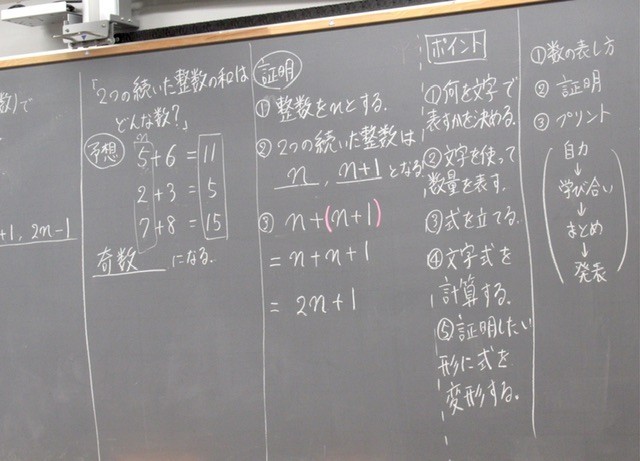 数)で
+1, 2n-1
「2つの続いた整数の和は
どんな数?」
予想
n
5+6=11
2+3=5
7+8=15
奇数になる.
証明
①整数をnとする.
②2つの続いた整数は
n, n+1 となる.
③ n+(n+1)
=n+n+1
=2n+1
ポイント
①何を文字で
表すかを決める.
②文字を使って
数量を表す.
③式を立てる.
④文字式を
計算する.
⑤証明したい
形に式を
変形する.
①数の表し方
②証明
③プリント
自力
↓
学び合い
↓
まとめ
↓
発表